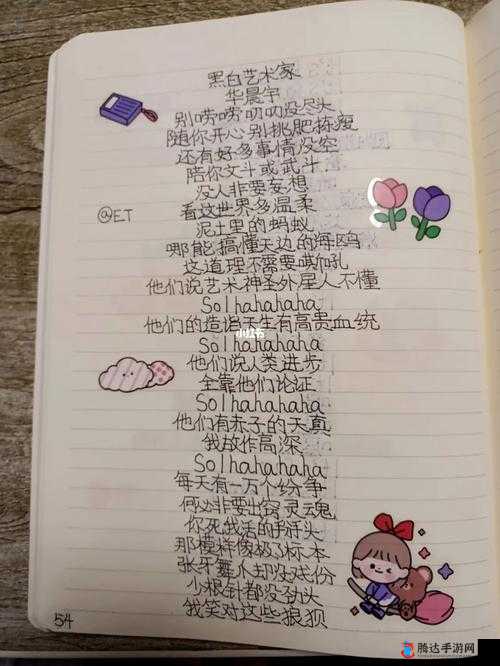 黑白艺术家
华晨宇
别唠唠叨叨没尽头
随你开心别挑肥拣瘦
还有好多事情没空
陪你文斗或武斗
没人非要妄想
@ET
看这世界多温柔
泥土里的蚂蚁
哪能搞懂天边的海鸥
这道理不需要嘶吼
他们说艺术神圣外星人不懂
Solhahahaha
他们的造诣天生有高贵血统
Solhahahaha
小红书
他们说人类进步
全靠他们论证
Solhahahaha
他们有赤子的天真
我故作高深
Solhahahaha
每天有一万个纷争
何必非要出窍灵魂
你死我活的
那模样像极了标本
张牙舞爪却没戏份
小根针都没劲头
我笑对这些狼狈
54
腾达手游网